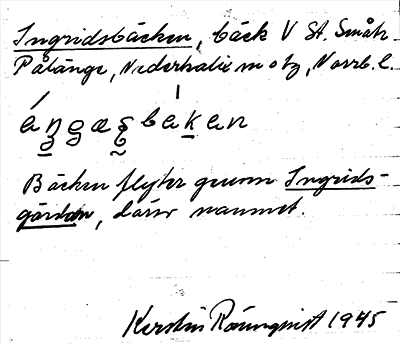 Ingridsbäcken, bäck V St. Småtr.
Påläng, Nederkalix m o tg, Norrb. l.
Bäcken flyter genom Ingrids-
gården, därav namnet.
Kerstin Rönnqvist 1945